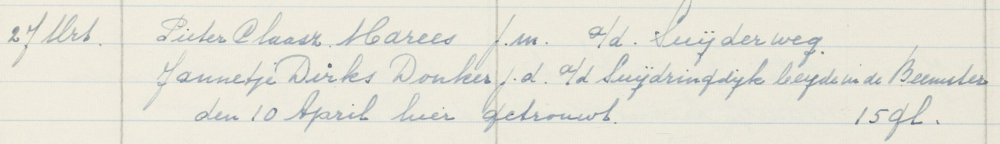 27 Mrt. Pieter Claasz. Marees j.m. a/d. Suijderweg.
Jannetje Dirks Donker j.d. a/d Suijdringdijk beyde in de Beemster
den 10 April hier getrouwt. 15 gl.